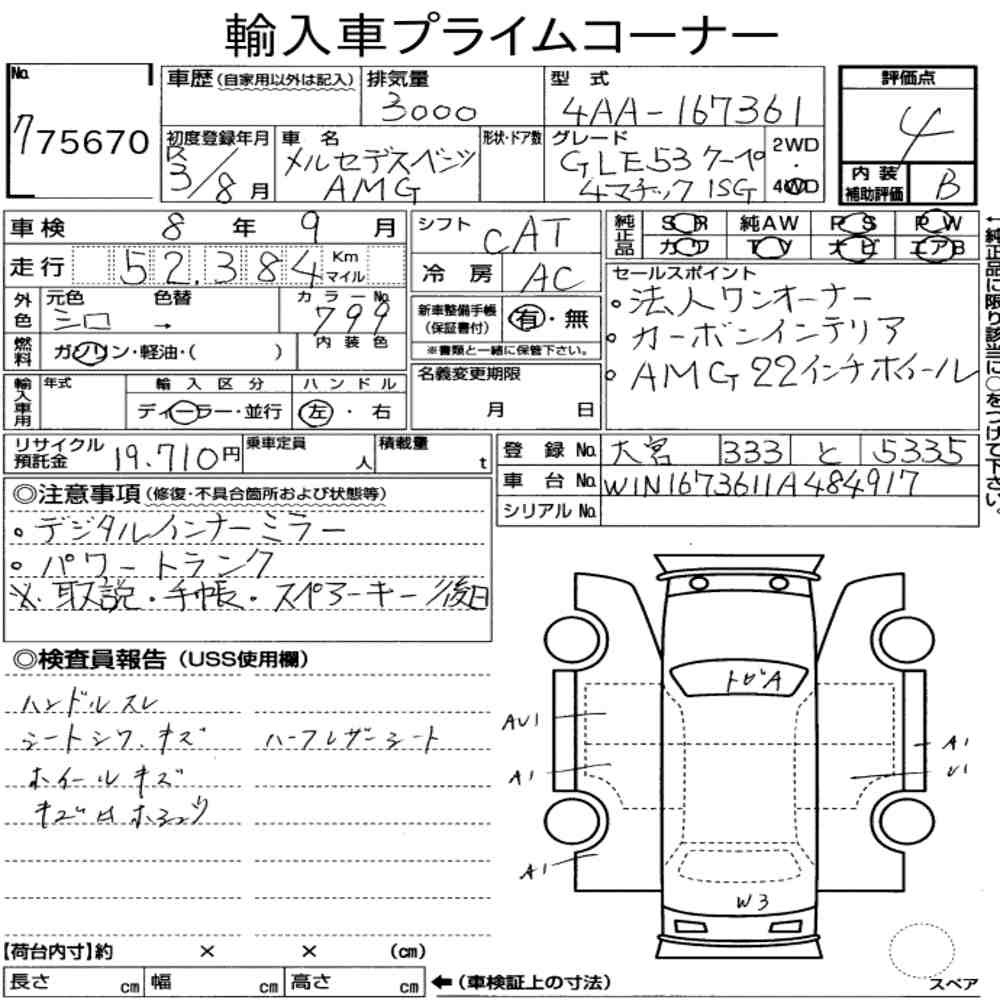 輸入車プライムコーナー
No. 775670
車歴(自家用以外は記入) 排気量 3000 型式 4AA-167361
評価点 4
初度登録年月 R3/8月
車名 メルセデスベンツ AMG
形状・ドア数
グレード GLE53クーペ 4マチック ISG
2WD・4WD
内装補助評価 B
車検 8年9月
シフト CAT
純正品 SR 純AW PS PW
カワ TV ナビ エアB
走行 52,384 Km マイル
冷房 AC
セールスポイント
。法人ワンオーナー
。カーボンインテリア
。AMG22インチホイール
←純正品に限り該当に○をつけて下さい。
外色 元色 シロ 色替 → カラーNo. 799
内装色
新車整備手帳(保証書付) 有・無
※書類と一緒に保管下さい。
燃料 ガソリン・軽油・( )
名義変更期限 月 日
輸入車用 年式 輸入区分 ディーラー・並行 ハンドル 左・右
リサイクル預託金 19,710円 乗車定員 人 積載量 t
登録No. 大宮 333 と 5335
車台No. W1N1673611A484917
シリアルNo.
◎注意事項(修復・不具合箇所および状態等)
。デジタルインナーミラー
。パワートランク
※.取説・手帳・スペアーキー/後日
◎検査員報告(USS使用欄)
ハンドルスレ
シートシワ.キズ ハーフレザーシート
ホイールキズ
トビA
AU1
A1
A1
A1
U1
W3
【荷台内寸】約 × × (cm)
長さ cm 幅 cm 高さ cm ←(車検証上の寸法)
スペア